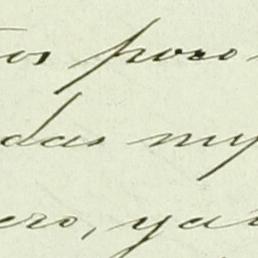 os poco
das my
ero, ya